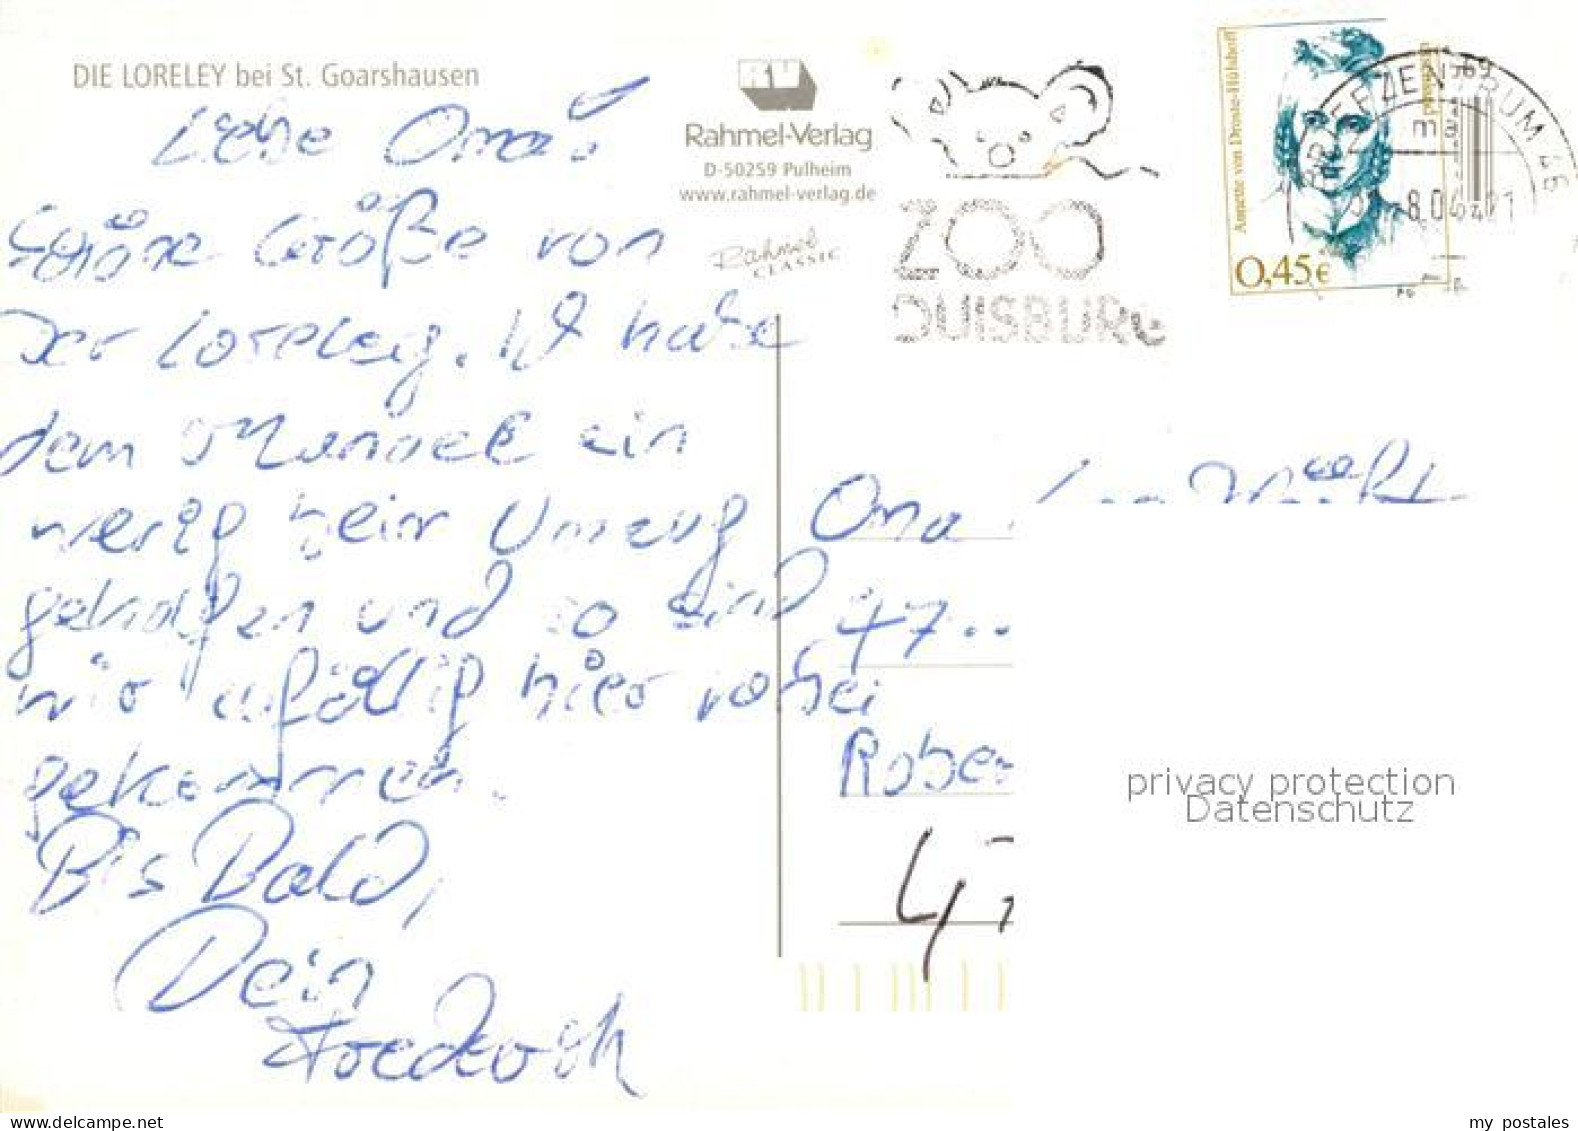 DIE LORELEY bei St. Goarshausen
Liebe Oma!
Schöne Größe von
Der Loreley. Ich habe
dem Manuel ein
wenig beim Umzug
geholfen und so sind
wir zufällig hier vorbei
gekommen.
Bis Bald,
Dein
Frederik
RV
Rahmel-Verlag
D-50259 Pulheim
www.rahmel-verlag.de
Rahmel
CLASSIC
ZOO
DUISBURG
Annette von Droste-Hülshoff
Deutschland
0,45€
BRIEFZENTRUM 46
Oma
47..
Rober
privacy protection
Datenschutz
www.delcampe.net
my_postales